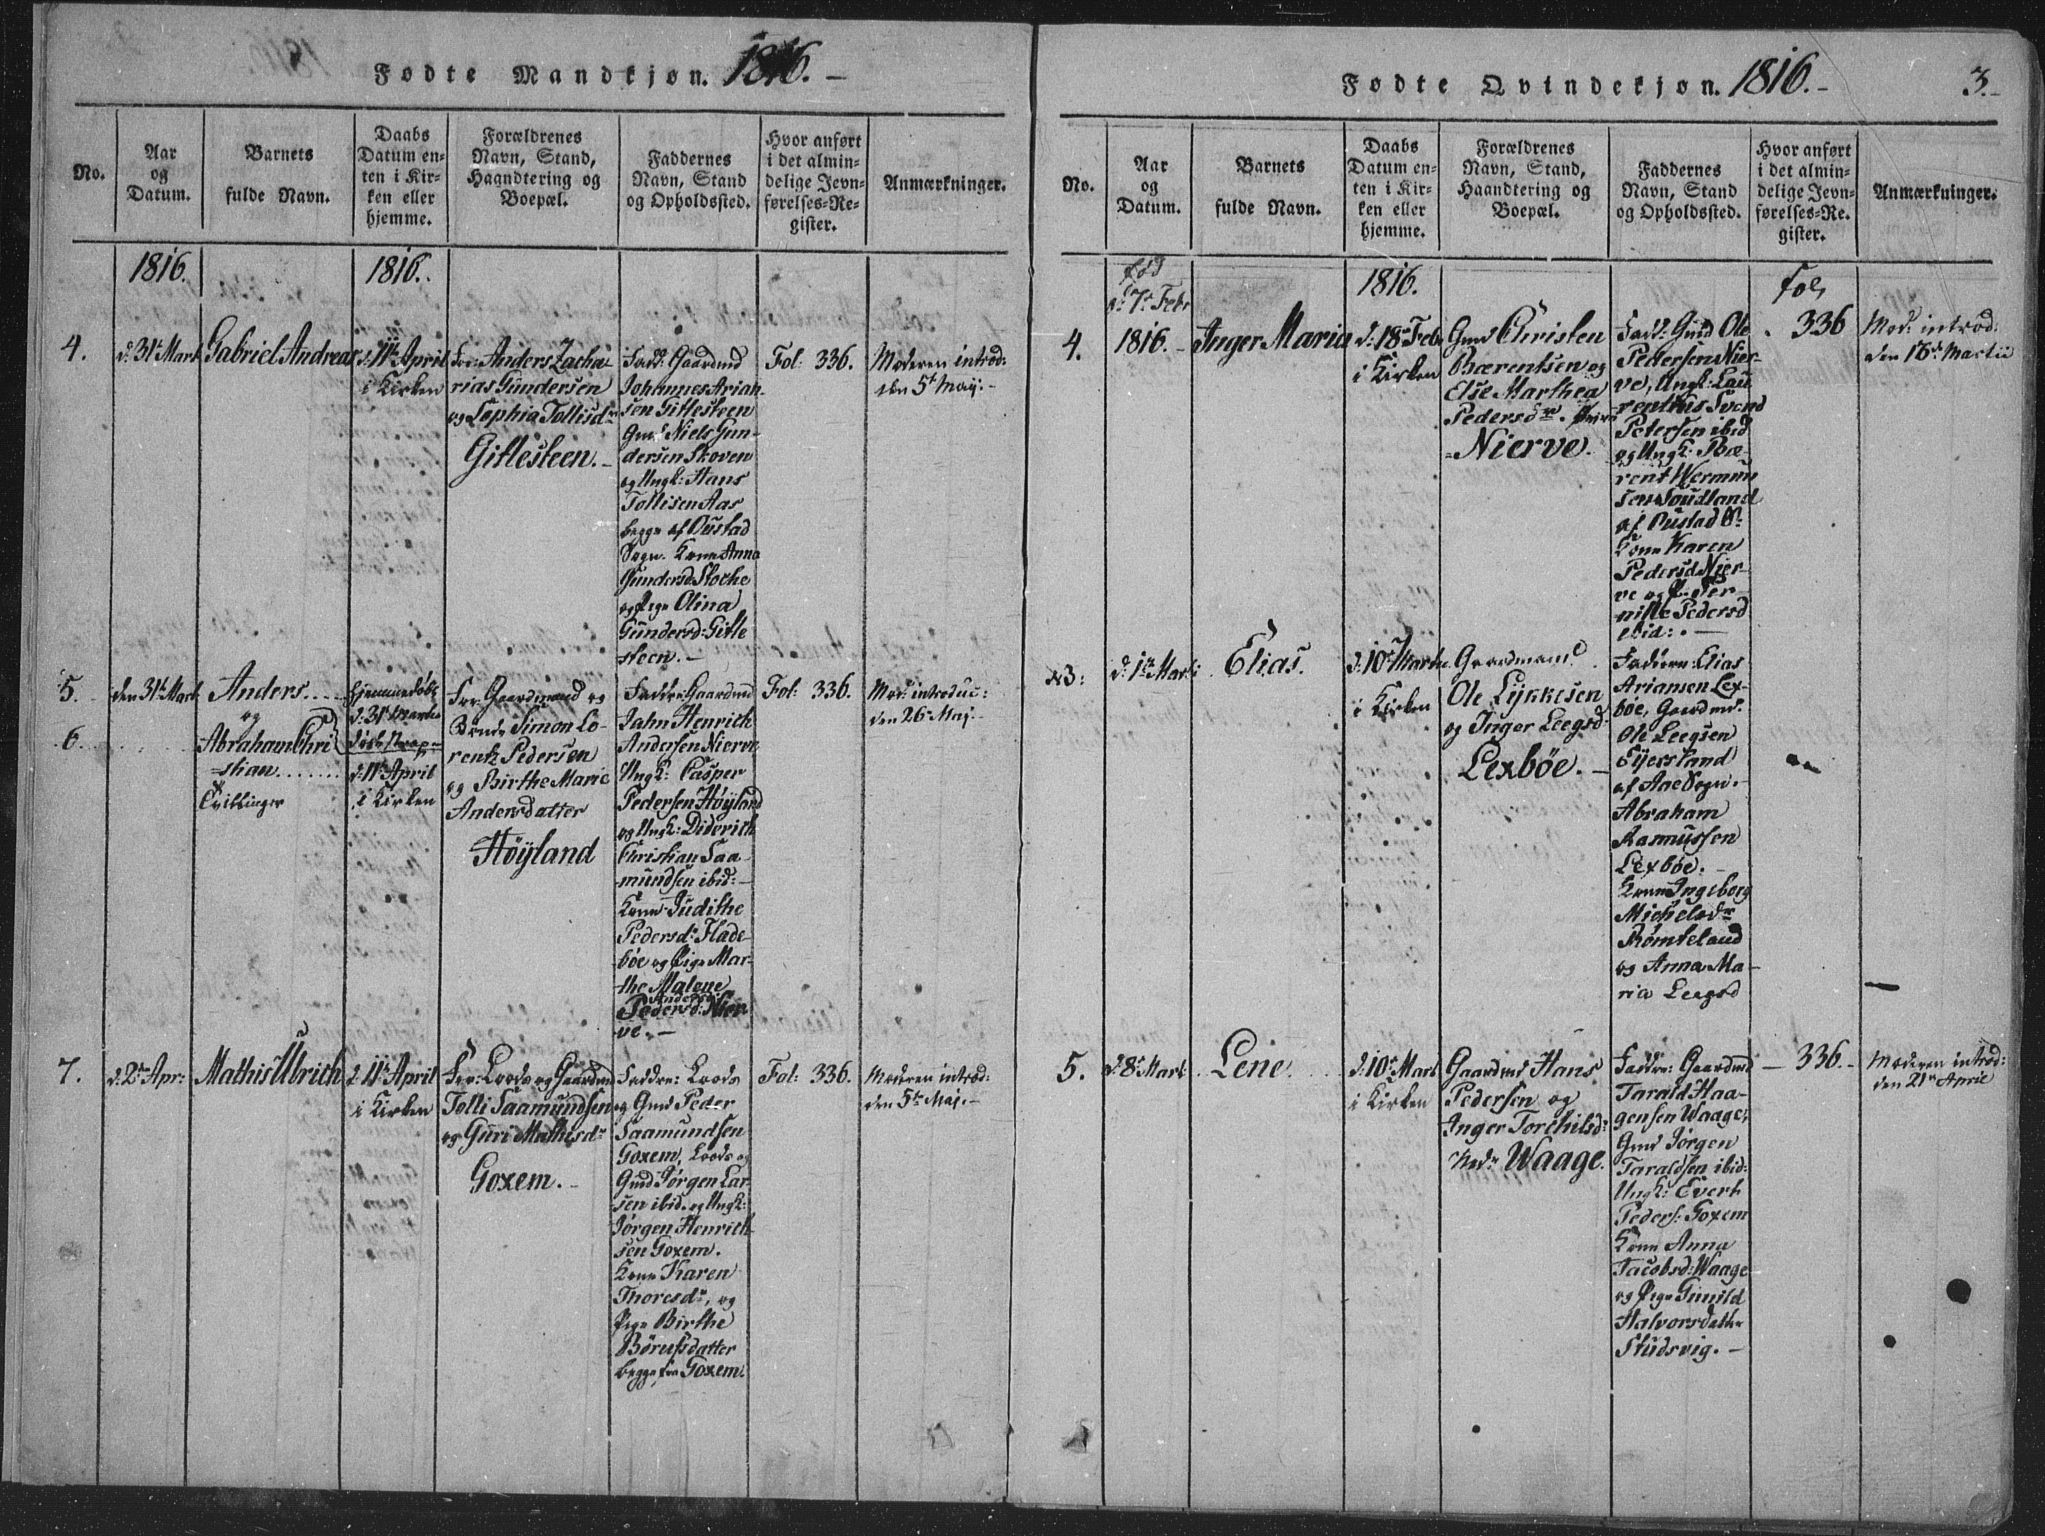 Fødte Mandkjøn. 1816.
No.
Aar
og
Datum.
Barnets
fulde Navn.
Daabs
Datum en-
ten i Kir-
ken eller
hjemme.
Forældrenes
Navn, Stand,
Haandtering og
Boepæl.
Faddernes
Navn, Stand
og Opholdssted.
Hvor anført
i det almin-
delige Jevn-
førelses-Re-
gister.
Anmærkninger.
1816.
1816.
4.
d: 31te Mart
Gabriel Andreas
d: 11te April
i Kirken
For: Anders Zacha-
rias Gundersen
og Sophia Tollisdr
Gitlesteen.
Fadd: Gaardmd
Johannes Arian-
sen Gitlesteen
Gmd Niels Gun-
dersen Skoven
og Ungk: Hans
Tollisen Aas
begge af Oustad
Sogn. Kone Anna
Gundersd: Stocke
og Pige Olina
Gundersd: Gitle
steen.
Fol: 336.
Moderen introd:
den 5te Maij.
5.
6.
den 31te Mart
Anders
og
Abraham Chri
stian
Tvillinger
hjemmedøbt
d: 31te Martii
d: 11te April
i Kirken
For: Gaardmand og
Bonde Simon Lo-
rentz Pedersen
og Birthe Marie
Andersdatter
Høyland
Faddre Gaardmd
Jahn Henrich
Andersen Nierve
Ungk: Casper
Pedersen Høyland
og Ungk: Diderich
Christian Saa-
mundsen ibid:
Kone Judithe
Pedersdr Flade-
bøe og Pige Mar-
the Malene
Andersd:
Pedersd: Nier
ve.
Fol: 336.
Mod: introduc:
den 26 Maj.
7.
d: 2de Apr:
Mathis Ulrich
d: 11te April
i Kirken
For: Loods og Gaardmd
Tolli Saamundsen
og Guri Mathisdr
Goxem.
Faddre: Loods
og Gmd Peder
Saamundsen
Goxem, Loods og
Gmd Jørgen Lar-
sen ibid. og Ungk:
Jørgen Henrich-
sen Goxem.
Kone Karen
Thoresdr, og
Pige Birthe
Børufsdatter
begge fra Goxem.
Fol: 336.
Moderen introd:
den 5te Maj.
Fødte Qvindekjøn. 1816.
3.
No.
Aar
og
Datum.
Barnets
fulde Navn.
Daabs
Datum en-
ten i Kir-
ken eller
hjemme.
Forældrenes
Navn, Stand,
Haandtering og
Boepæl.
Faddernes
Navn, Stand
og Opholdssted.
Hvor anført
i det almin-
delige Jevn-
førelses-Re.
gister.
Anmærkninger.
4.
fød
d: 7de Febr
1816.
Inger Maria
1816.
d: 18de Febr
i Kirken
Gmd Christen
Bærentsen og
Else Marthea
Pedersdr.
Nierve.
Fadd: Gmd Ole
Pedersen Nier-
ve, Ungk: Lau
rentius Svend
Petersen ibid
og Ungk: Bæ-
rent Wermun
sen Soudland
af Oustad S.
Kone Karen
Pedersd Nier-
ve og P. Per-
nille Pedersd
ibid:
Fol:
336
Mod: introd:
den 18de Martii
3:
d: 1te Marti
Elias.
d: 10de Martii
i Kirken
Gaardmand
Ole Lykkesen
og Inger Leegsd:
Lexbøe.
Faddere: Elias
Ariansen Lex-
bøe, Gaardmd
Ole Leegsen
Eyersland
af Aae Sogn.
Abraham
Rasmussen
Lexbøe.
Kone Ingeborg
Michelsdr
Rømteland
og Anna Ma-
ria Leegsd
5.
d 8de Mart:
Lene
d: 10de Mart
i Kirken
Gaardmd Hans
Pedersen og
Inger Torchilsd:
Ned: Waage.
Faddre: Gaardmd
Tarald Haa-
gensen Waage,
Gmd Jørgen
Taraldsen ibid:
Ungk: Evert
Peders: Goxem
Kone Anna
Jacobsd: Waage
og Pige Gunild
Halvorsdatter
Studsvig.
336.
Moderen introd:
den 21de Aprie